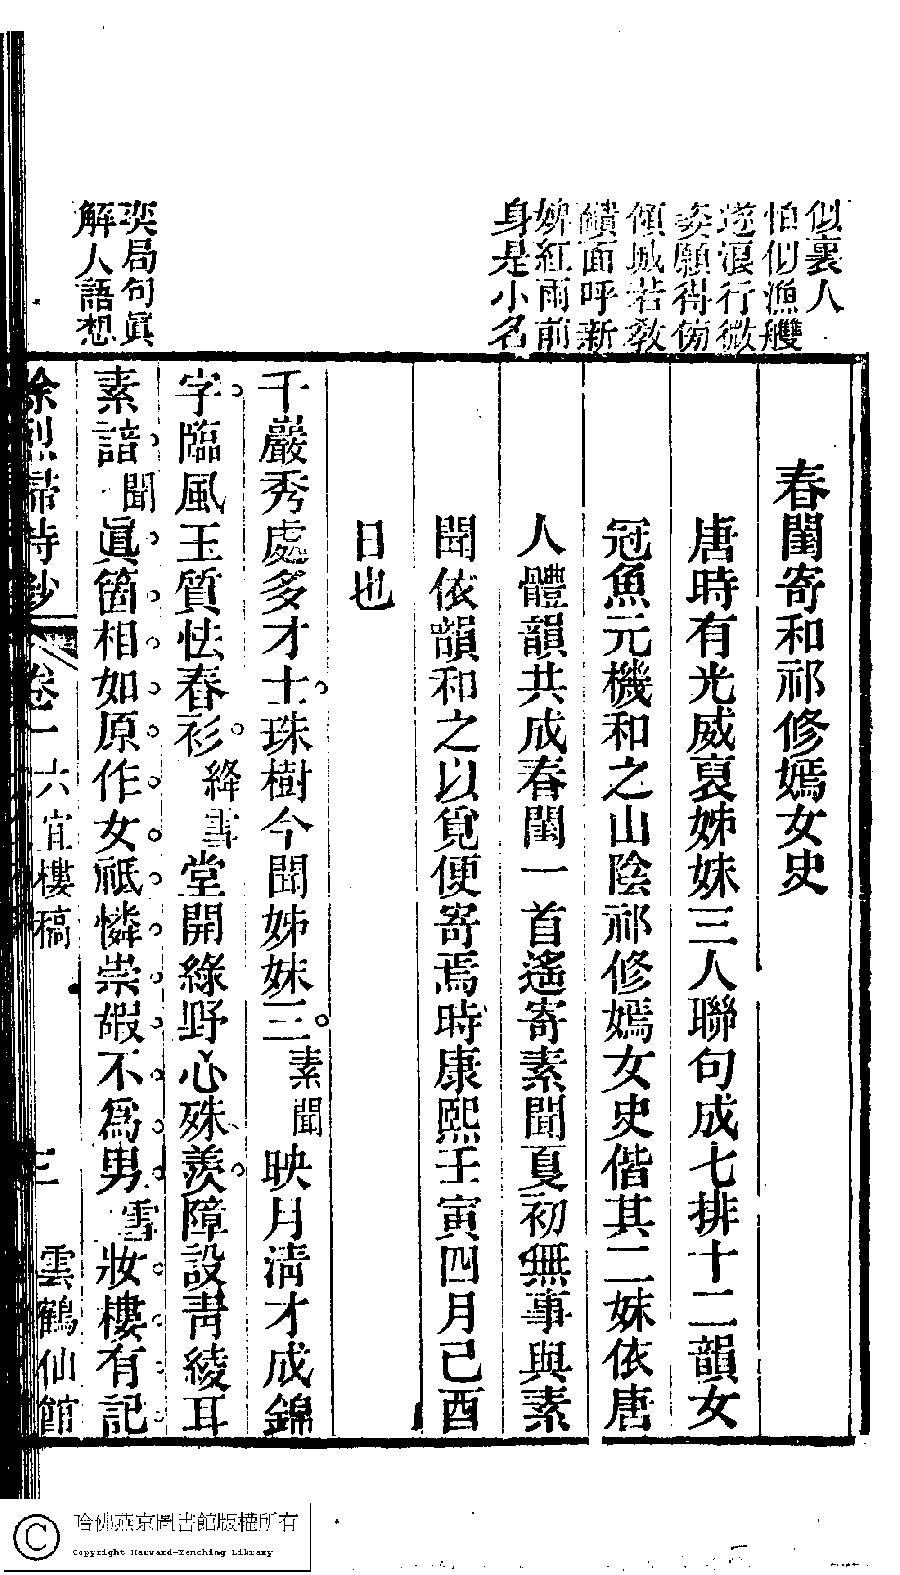 似裏人
怕似漁艭
遊浪行微
妾願得傍
傾城若教
靧面呼新
婢紅雨前
身是小名
奕局句眞
解人語想
春閨寄和祁修嫣女史
唐時有光威裒姊妹三人聯句成七排十二韻女
冠魚元機和之山陰祁修嫣女史偕其二妹依唐
人體韻共成春閨一首遙寄素聞夏初無事與素
聞依韻和之以覓便寄焉時康熙壬寅四月己酉
日也
千巖秀處多才士珠樹今聞姊妹三素聞映月清才成錦
字臨風玉質怯春衫絳雪堂開綠野心殊羨障設靑綾耳
素諳聞眞箇相如原作女祗憐崇嘏不爲男雪妝樓有記
徐烈婦詩鈔 卷一 六宜樓稿 三 雲鶴仙館
哈佛燕京圖書館版權所有
Copyright Harvard-Yenching Library